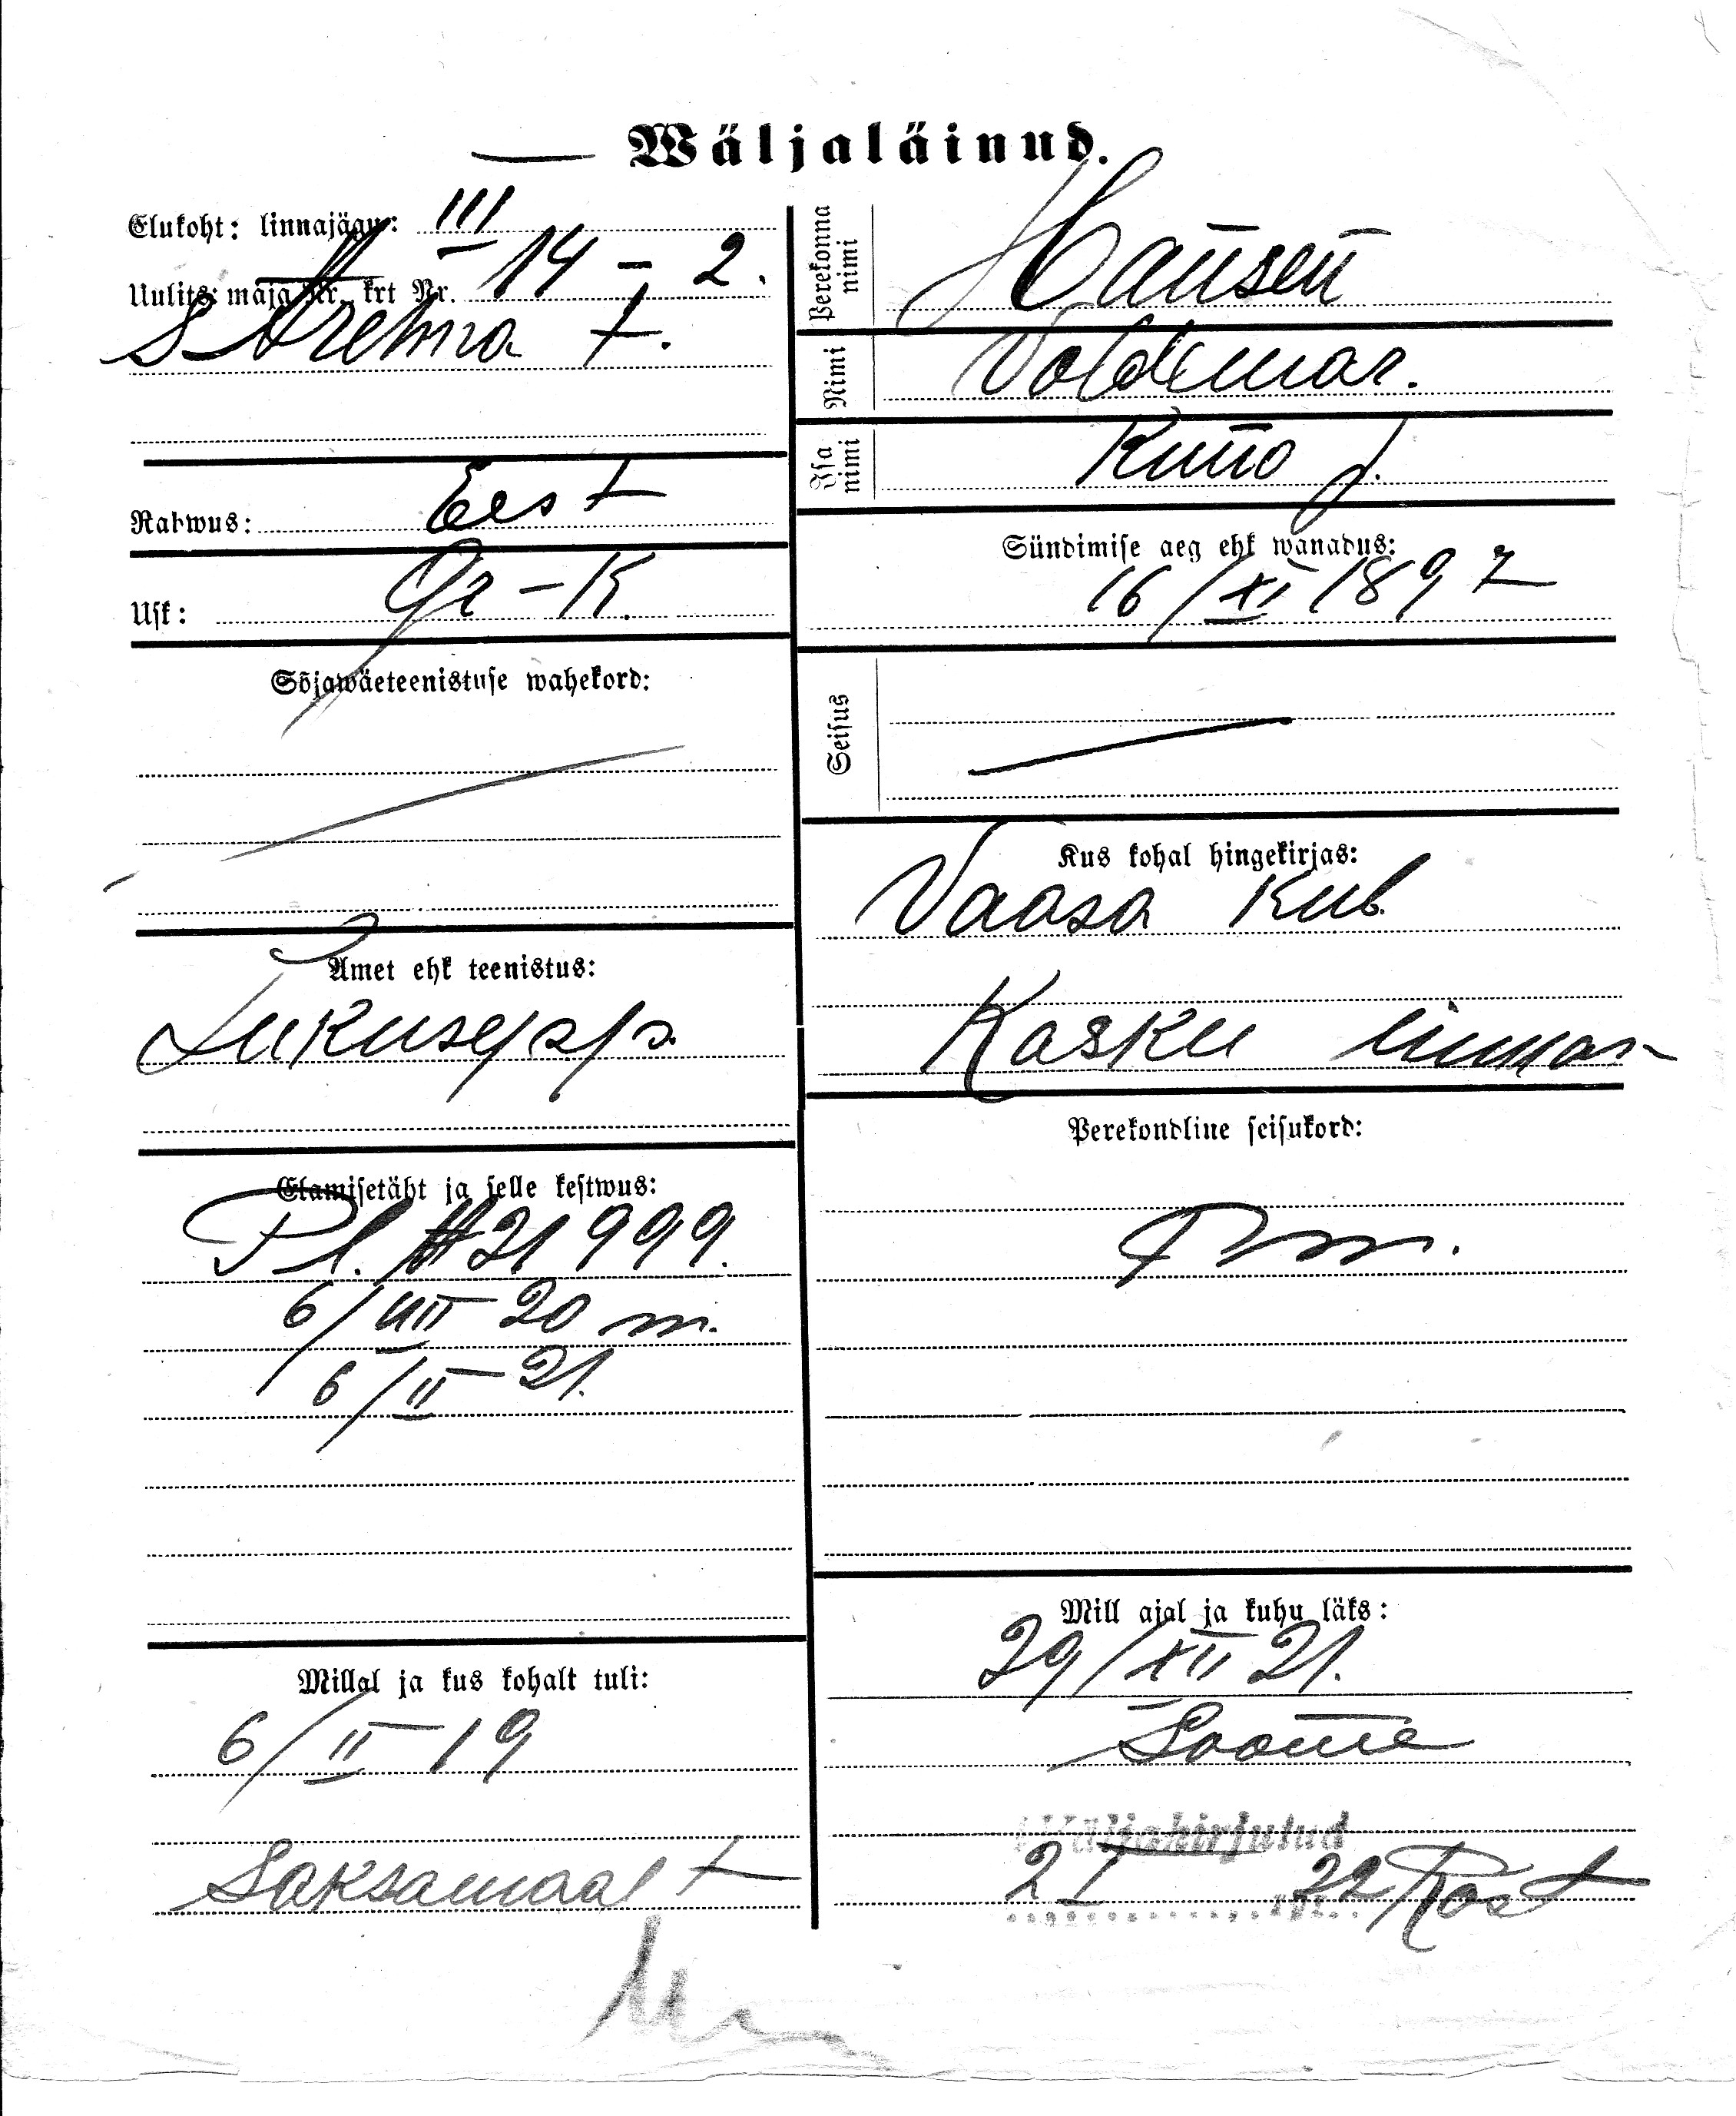 Wäljaläinud.
Elukoht: linnajägu: III
Uulits: maja Nr. krt Nr. 14 – 2.
S t.
Rahwus: Eest
Usk: Gr-K.
Sõjawäeteenistuse wahekord:
Amet ehk teenistus:
Lukusepp.
Elamisetäht ja selle kestwus:
Pl. № 21999.
6/VIII 20 m.
6/II 21.
Millal ja kus kohalt tuli:
6/II 19
Saksamaalt
Perekonna nimi Hansen
Nimi Voldemar.
Isa nimi Kuno j.
Sündimise aeg ehk wanadus:
16/XI 1897
Seisus
Kus kohal hingekirjas:
Vaasa Kub.
Kasku linnas
Perekondline seisukord:
Mill ajal ja kuhu läks:
29/XII 21.
Soome
Wäljakirjutud
2 I 22 Rost